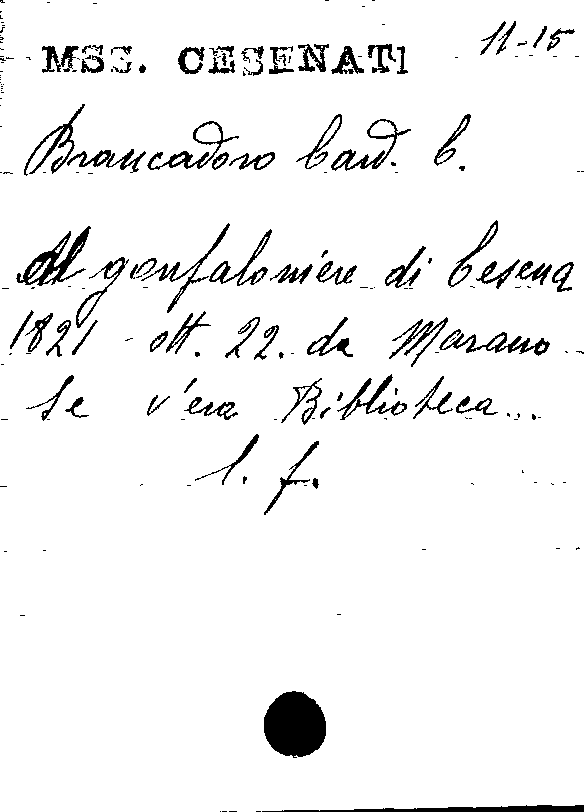 MSS. CESENATI 11-15
Brancadoro Card. C.
Al gonfaloniere di Cesena
1821 ott. 22. da Morano
Se v'era Biblioteca...
l. f.